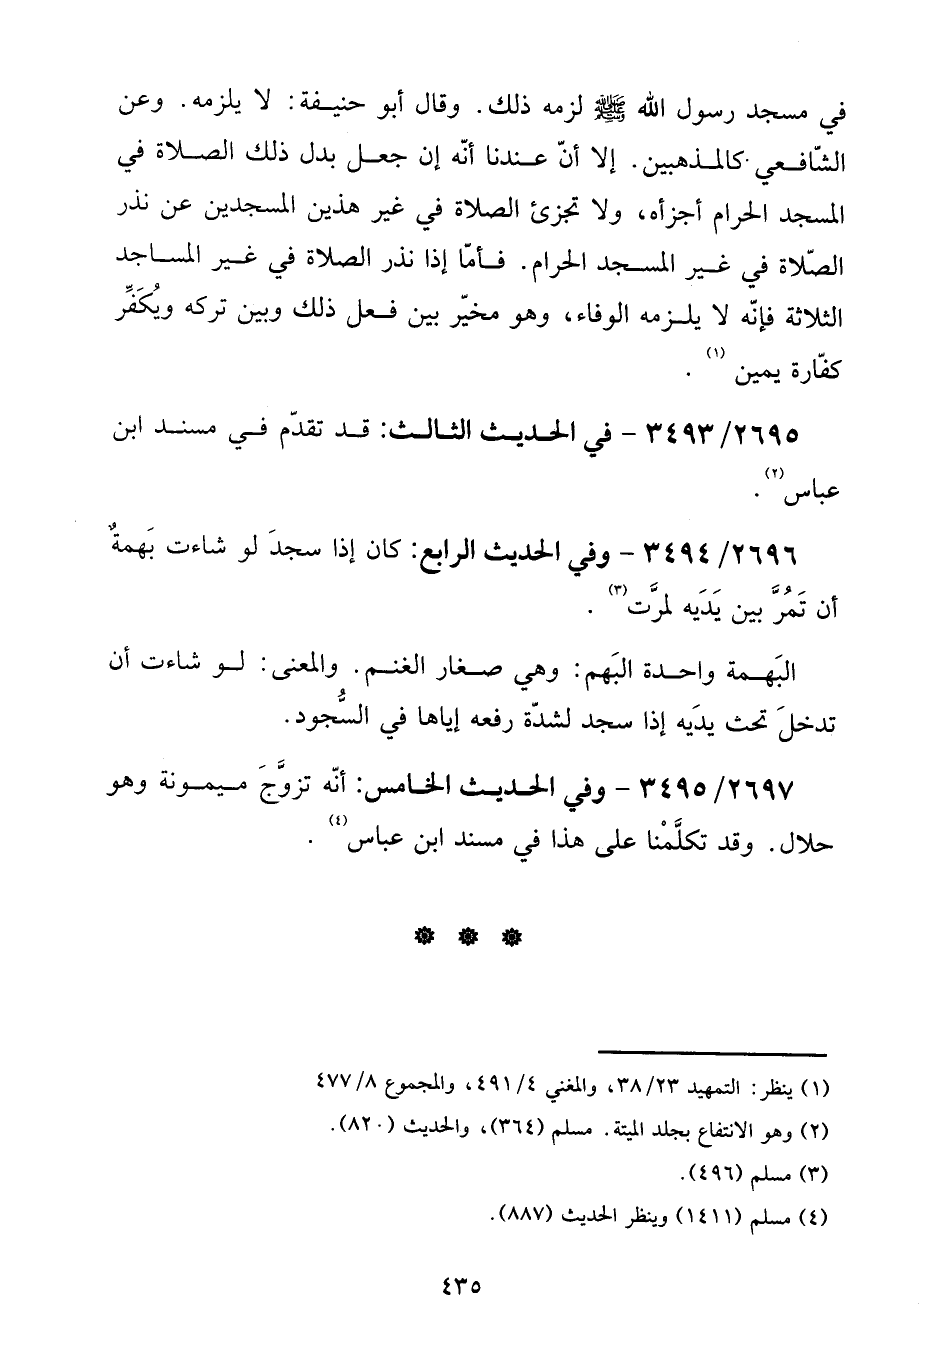 في مسجد رسول الله ﷺ لزمه ذلك. وقال أبو حنيفة: لا يلزمه. وعن
الشّافعي كالمذهبين. إلا أنّ عندنا أنّه إن جعل بدل ذلك الصلاة في
المسجد الحرام أجزأه، ولا تجزئ الصلاة في غير هذين المسجدين عن نذر
الصّلاة في غير المسجد الحرام. فأمّا إذا نذر الصلاة في غير المساجد
الثلاثة فإنّه لا يلزمه الوفاء، وهو مخيّر بين فعل ذلك وبين تركه ويُكَفِّر
كفّارة يمين (١) .
٢٦٩٥/ ٣٤٩٣ - في الحديث الثالث: قد تقدّم في مسند ابن
عباس(٢) .
٢٦٩٦/ ٣٤٩٤ - وفي الحديث الرابع: كان إذا سجدَ لو شاءت بَهمةٌ
أن تَمُرَّ بين يَدَيه لمرَّت(٣) .
البَهمة واحدة البَهم: وهي صغار الغنم. والمعنى: لو شاءت أن
تدخلَ تحت يدَيه إذا سجد لشدّة رفعه إياها في السُّجود.
٢٦٩٧/ ٣٤٩٥ - وفي الحديث الخامس: أنّه تزوَّجَ ميمونة وهو
حلال. وقد تكلَّمْنا على هذا في مسند ابن عباس(٤) .
(١) ينظر: التمهيد ٢٣/ ٣٨، والمغني ٤/ ٤٩١، والمجموع ٨/ ٤٧٧
(٢) وهو الانتفاع بجلد الميتة. مسلم (٣٦٤)، والحديث (٨٢٠).
(٣) مسلم (٤٩٦).
(٤) مسلم (١٤١١) وينظر الحديث (٨٨٧).
٤٣٥